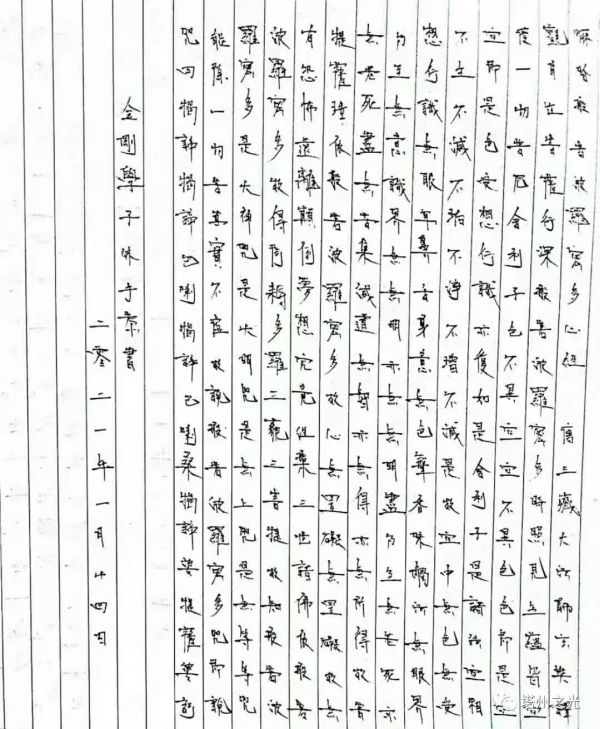 摩訶般若波羅蜜多心經 唐三藏大法師玄奘譯
觀自在菩薩行深般若波羅蜜多時照見五蘊皆空
度一切苦厄舍利子色不異空空不異色色即是空
空即是色受想行識亦復如是舍利子是諸法空相
不生不滅不垢不淨不增不減是故空中無色無受
想行識無眼耳鼻舌身意無色聲香味觸法無眼界
乃至無意識界無無明亦無無明盡乃至無老死亦
無老死盡無苦集滅道無智亦無得亦無所得故菩
提薩埵依般若波羅蜜多故心無罣礙無罣礙故無
有恐怖遠離顛倒夢想究竟涅槃三世諸佛依般若
波羅蜜多故得阿耨多羅三藐三菩提故知般若波
羅蜜多是大神咒是大明咒是無上咒是無等等咒
能除一切苦真實不虛故說般若波羅蜜多咒即說
咒曰揭諦揭諦巴喇揭諦巴喇桑揭諦婆提薩婆訶
金剛學子書
二零二一年一月廿四日
州之光